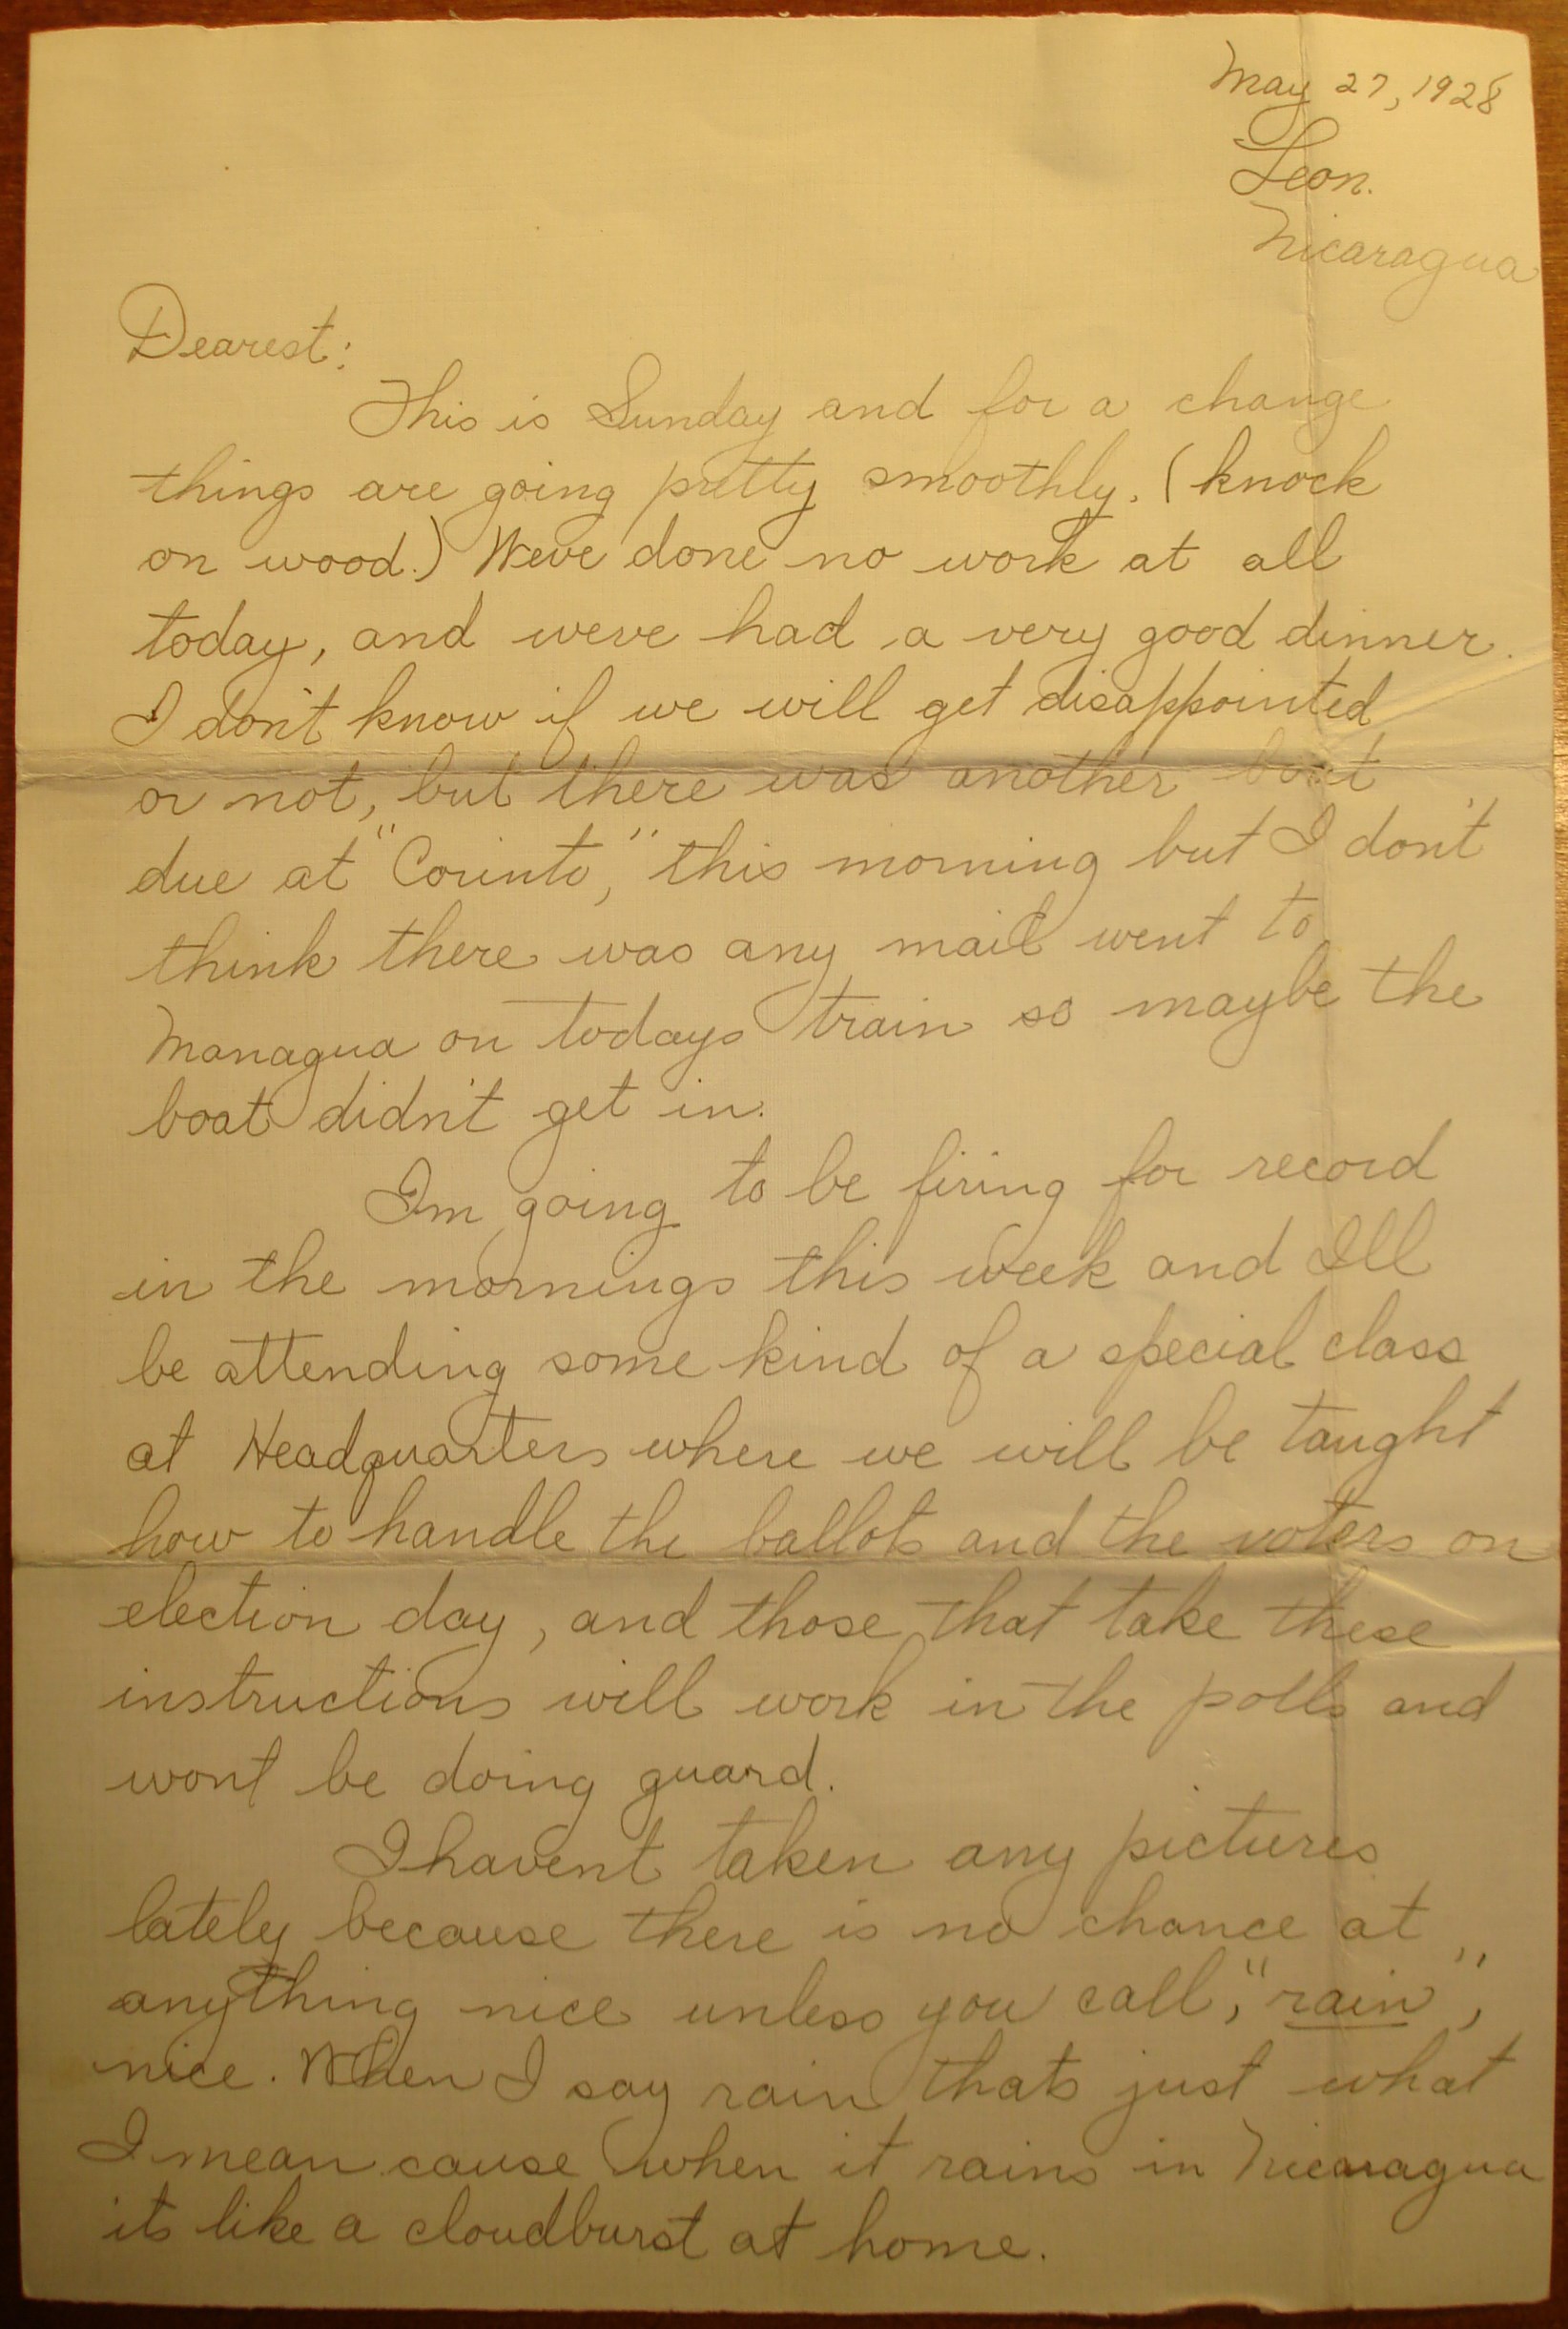 May 27, 1928
Leon.
Nicaragua
Dearest:
This is Sunday and for a change
things are going pretty smoothly. (knock
on wood.) Weve done no work at all
today, and weve had a very good dinner.
I don't know if we will get disappointed
or not, but there was another boat
due at "Corinto," this morning but I don't
think there was any mail went to
Managua on todays train so maybe the
boat didn't get in.
Im going to be firing for record
in the mornings this week and Ill
be attending some kind of a special class
at Headquarters where we will be taught
how to handle the ballots and the voters on
election day, and those that take these
instructions will work in the polls and
wont be doing guard.
I havent taken any pictures
lately because there is no chance at
anything nice unless you call, "rain",
nice. When I say rain thats just what
I mean cause when it rains in Nicaragua
its like a cloudburst at home.